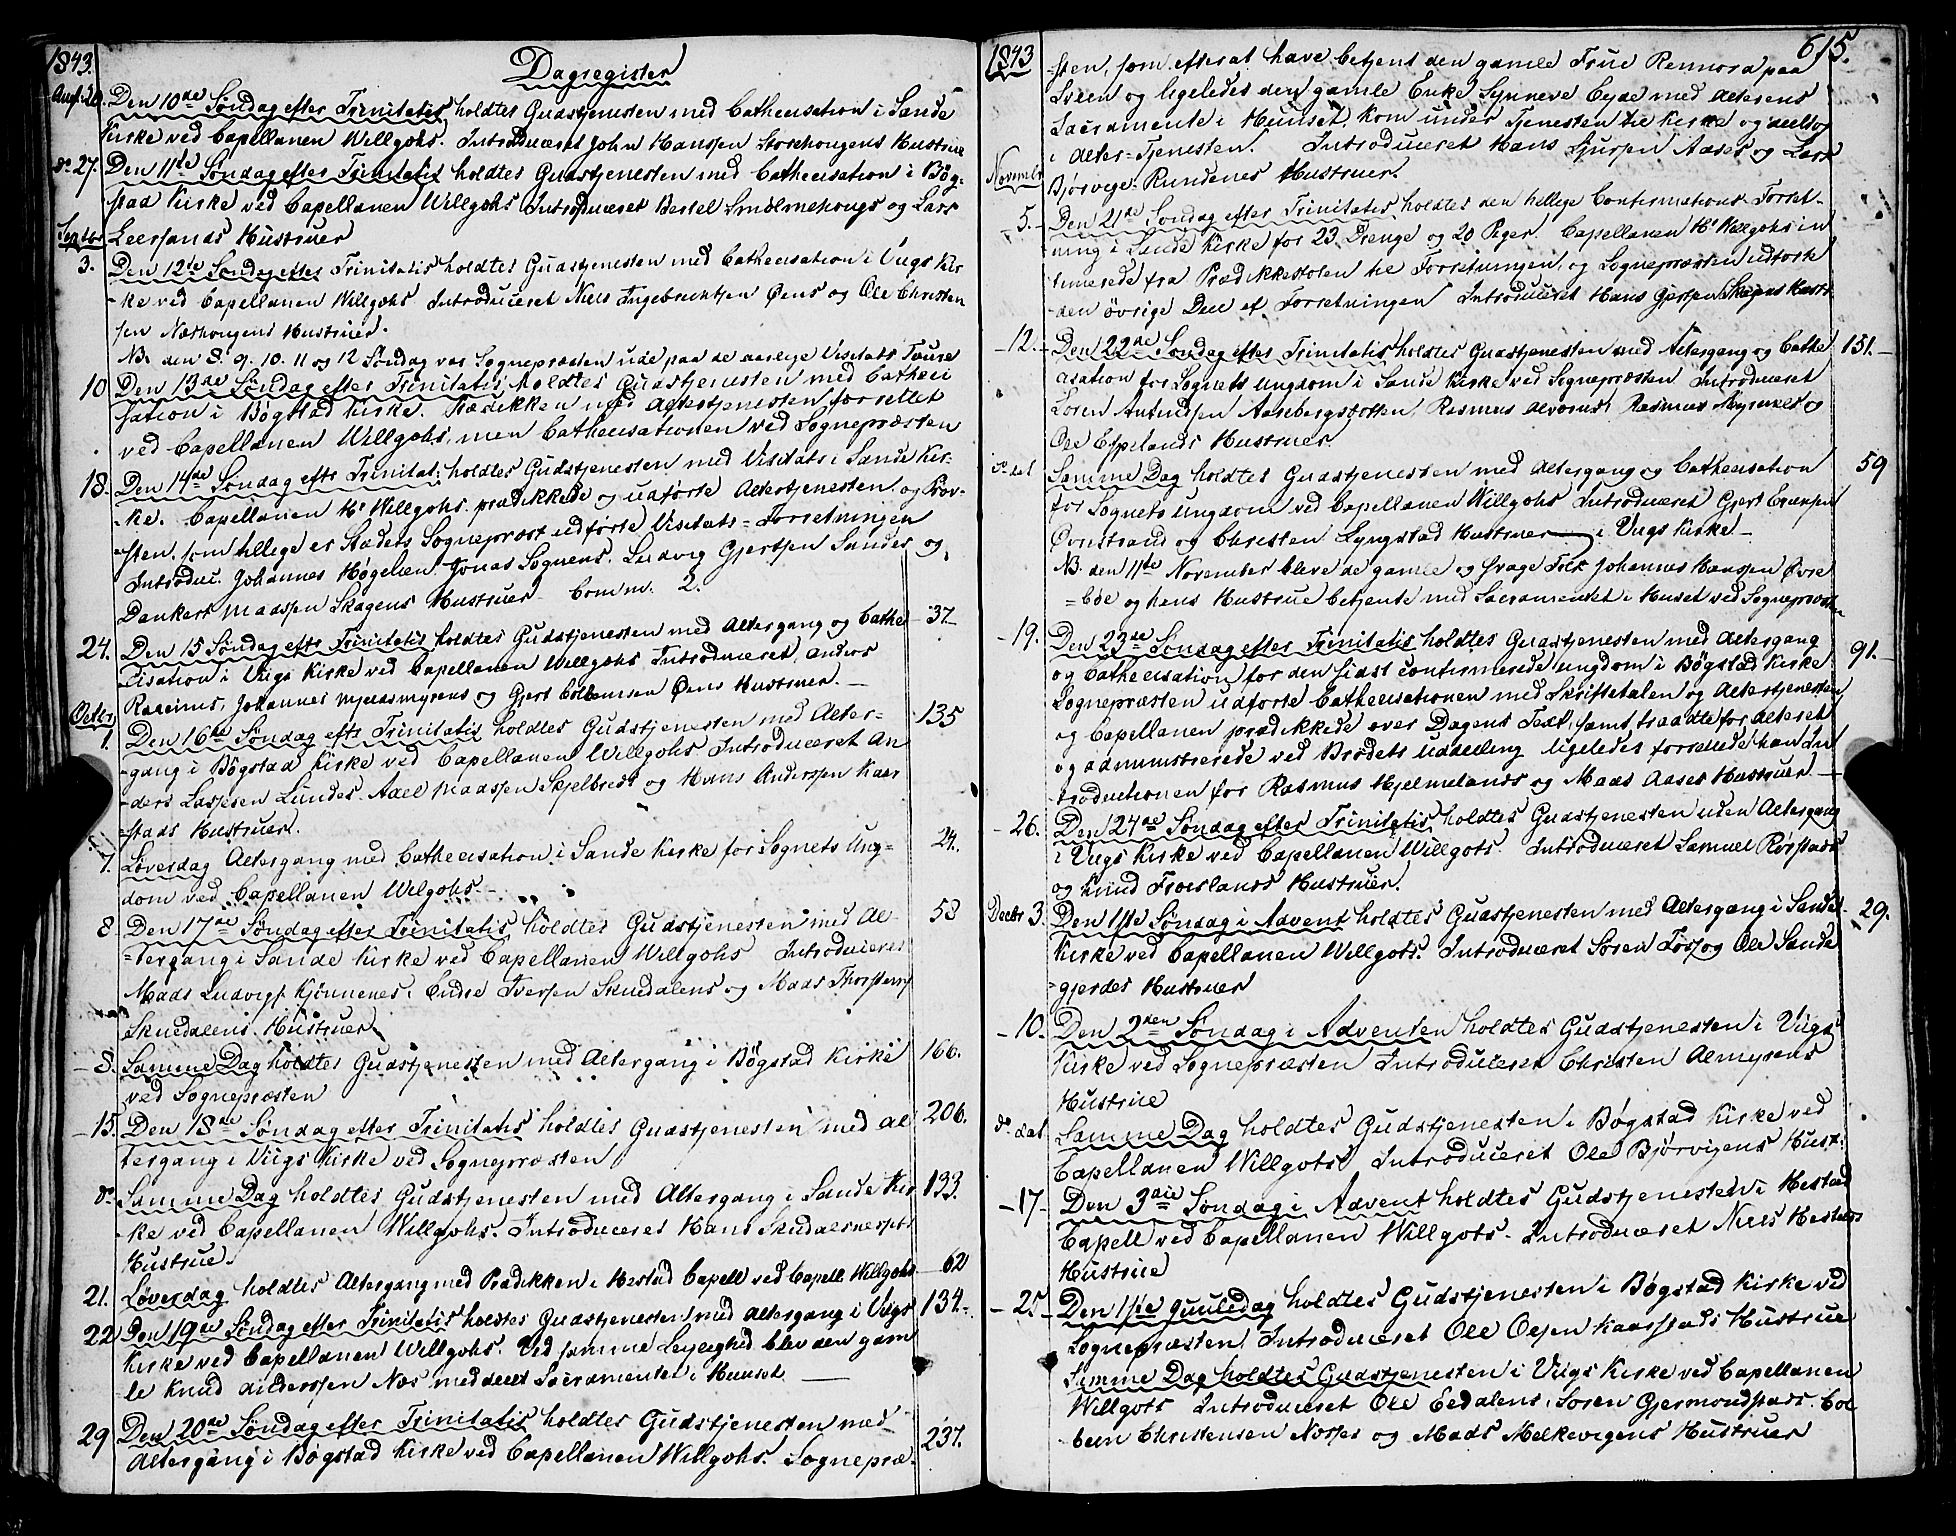 1843.
Dagregister
Augt. 20. Den 10de Søndag efter Trinitatis holdtes Gudstjenesten med Cathecisation i Sande
Kirke ved Capellanen Willgohs. Introduceret John Hanssen Storehougens Hustrue
do 27. Den 11te Søndag efter Trinitatis holdtes Gudstjenesten med Cathecisation i Bøg-
stad Kirke ved Capellanen Willgohs Introduceret Bertel Smølmehougs og Lars
Septbr Leersunds Hustruer
3. Den 12te Søndag efter Trinitatis holdtes Gudstjenesten med Cathecisation i Viigs Kir
ke ved Capellanen Willgohs Introduceret Niels Ingebrechtsen Øens og Ole Christen
sen Næshougens Hustruer.
NB. den 8. 9. 10. 11 og 12 Søndag var Sognepræsten ude paa de aarlige Visitats Toure
10 Den 13de Søndag efter Trinitatis holdtes Gudstjenesten med Catheci
sation i Bøgstad Kirke. Prædikken med Altertjenesten forrettet
ved Capellanen Willgohs, men Cathecisationen ved Sognepræsten
18. Den 14de Søndag eftr Trinitat: holdtes Gudstjenesten med Visitats i Sande Kir-
ke. Capellanen Hr Willgohs prædikkede og udførte Altertjenesten og Prov-
sten, som tillige er Stædets Sognepræst udførte Visitats-Forretningen
Introduc. Johannes Høgelien Jonas Sognens, Ludvig Gjertsen Sandes og
Dankert Maassen Skagens Hustruer Comm. 2.
24. Den 15 Søndag eftr Trinitatis holdtes Gudstjenesten med Altergang og Cathe 37
cisation i Viigs Kirke ved Capellanen Willgohs Introduceret, Anders
Rasinus, Johannes Myrasmyrens og Gjert Colbensen Øens Hustruer.
Octbr
1. Den 16te Søndag eftr Trinitatis holdtes Gudstjenesten med Alter- 135
gang i Bøgstad Kirke ved Capellanen Willgohs Introduceret An
ders Lassesen Lundes. Axel Maassen Skjelbreds og Hans Anderssen Kaar
stads Hustruer.
7. Løverdag Altergang med Cathecisation i Sande Kirke for Sognets Ung- 24.
dom ved Capellanen Wilgohs
8 Den 17de Søndag efter Trinitatis holdtes Gudstjenesten med Al- 53
tergang i Sande Kirke ved Capellanen Willgohs Introduceres
Mads Ludvigs Kjønnenes, Endre Iversen Skuedalens og Maas Thorstens
Skuedalens Hustruer
8. Samme Dag holdtes Gudstjenesten med Altergang i Bøgstad Kirke 166.
ved Sognepræsten
15. Den 18de Søndag efter Trinitatis holdtes Gudstjenesten med Al 206.
tergang i Viigs Kirke ved Sognepræsten
do Samme Dag holdtes Gudstjenesten med Altergang i Sande Kir 133.
ke ved Capellanen Willgohs. Introduceres Hans Skudalsnessets
Hustrue.
21. Løverdag holdtes Altergang med Prædikken i Hestad Capell ved Capell Willgohs 62
22 Den 19de Søndag efter Trinitatis holdtes Gudstjenesten med Altergang i Viigs 134.
Kirke ved Capellanen Willgohs. Ved samme Leylighed blev den gam
le Knud Anderssen Næs meddeelt Sacramentet i Huuset
29 Den 20de Søndag efter Trinitatis holdtes Gudstjenesten med
Altergang i Bøgstad Kirke ved Capellanen Willgohs. Sognepræ- 237.
1843 615.
sten, som efterat have betjent den gamle Frue Rennord paa
Sveen og ligeledes den gamle Enke Synneve Eyde med Alterens
Sacramente i Huuset, kom under Tjenesten til Kirke og deeltog
i Alter-Tjenesten. Introduceret Hans Sjursen Aases og Lars
Novembr Bjørvigs-Rundenes Hustruer.
5. Den 21de Søndag efter Trinitatis holdtes den hellige Confirmations-Forret-
ning i Sande Kirke for 23 Drenge og 20 Piger. Capellanen Hr Willgohs in
timerede fra Prædikkestolen til Forretningen, og Sognepræsten udførte
den øvrige Deel af Forretningen Introduceret Hans Gjertsen Skagens Hustr
12. Den 22de Søndag efter Trinitatis holdtes Gudstjenesten med Altergang og Cathe 151.
cisation for Sognets Ungdom i Sande Kirke ved Sognepræsten Introduceret
Søren Antindsen Aasebergspotten, Rasmus Alvorns, Rasmus Myrenes og
Ole Espelands Hustruer
do dat Samme Dag holdtes Gudstjenesten med Altergang og Cathecisation 59
for Sognets Ungdom ved Capellanen Willgohs Introduceret Gjert Erensen
Øvrstrand og Christen Lyngstad Hustruer i Viigs Kirke
NB. den 11te November bleve de gamle og svage Folk Johannes Hanssen Øvre
-bøe og hans Hustrue betjente med Sacramentet i Huset ved Sognepræsten
19. Den 23de Søndag efter Trinitatis holdtes Gudstjenesten med Altergang
og Cathecisation for den sidst confirmerede Ungdom i Bøgstad Kirke 91.
Sognepræsten udførte Cathecisationen med Skriftetalen og Altertjenesten
og Capellanen prædikkede over Dagens Text, samt traadte for Alteret
og administrerede ved Brødets Uddeeling ligeledes forrettede han In
troductionen for Rasmus Hjelmelands og Maas Aases Hustruer
26. Den 24de Søndag efter Trinitatis holdtes Gudstjenesten uden Altergang
i Viigs Kirke ved Capellanen Willgots. Introduceret Samuel Rørstads
og Knud Froeslands Hustruer.
Decbr 3. Den 1ste Søndag i Advent holdtes Gudstjenesten med Altergang i Sande 29.
Kirke ved Capellanen Willgots. Introduceret Søren Foss og Ole Sande
gjerdes Hustruer
10. Den 2den Søndag i Adventen holdtes Gudstjenesten i Viigs
Kirke ved Sognepræsten Introduceret Christen Almyrens
Hustrue
do dat Samme Dag holdtes Gudstjenesten i Bøgstad Kirke ved
Capellanen Willgots. Introduceret Ole Bjørvigens Hust:
17 Den 3die Søndag i Advent holdtes Gudstjenesten i Hestad
Capell ved Capellanen Willgots. Introduceret Niels Hestads
Hustrue
25 Den 1ste Juuledag holdtes Gudstjenesten i Bøgstad Kirke ved
Sognepræsten, Introduceret Ole Olsen Kaarstads Hustrue
Samme Dag holdtes Gudstjenesten i Viigs Kirke ved Capellanen
Willgots Introduceret Ole Eedalens, Søren Gjermondstads. Col
been Christensen Nøsses og Mads Melkevigens Hustruer